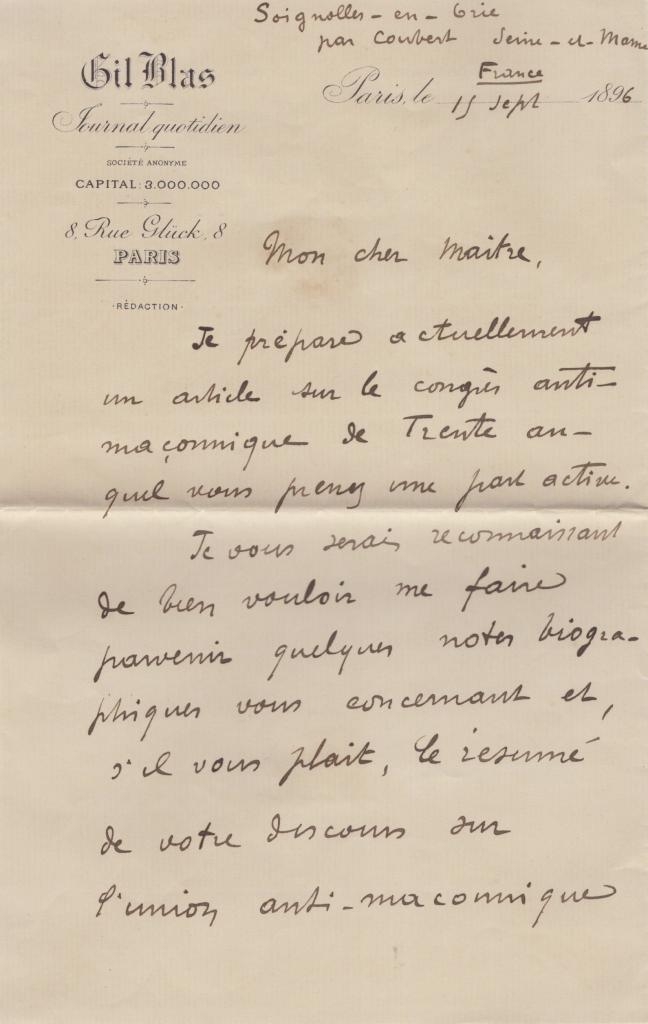 Soignolles-en-Brie
par Coubert Seine-et-Marne
France
Gil Blas
Journal quotidien
SOCIÉTÉ ANONYME
CAPITAL: 3.000.000
8, Rue Glück, 8
PARIS
·RÉDACTION·
Paris, le 15 Sept 1896
Mon cher Maitre,
Je prépare actuellement
un article sur le congrès anti-
maçonnique de Trente au-
quel vous prenez une part active.
Je vous serais reconnaissant
de bien vouloir me faire
parvenir quelques notes biogra-
phiques vous concernant et,
s'il vous plait, le résumé
de votre discours sur
l'union anti-maconnique